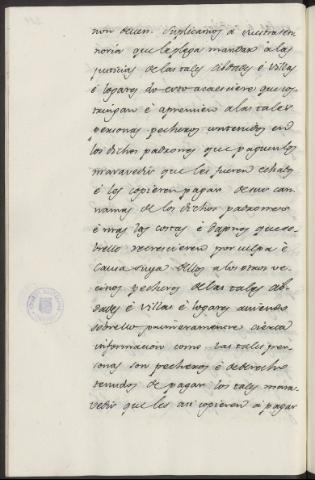 non deven. Suplicamos á vuestra sen
noria que le plega mandar á las
justicias de las tales cibdades é villas
é logares do esto acaesciere que cos
tringan é apremien á las tales
personas pecheros contenidos en
los dichos padrones que paguen los
maravedis que les fueren echados
é les copieren pagar
de los dichos padrones
é mas las costas é dapnos que so
brello recrescieren por culpa é
causa suya dellos á los otros ve
cinos pecheros de las tales cib
dades é villas é logares aviendo
sobrello primeramente cierta
informacion como las tales per
sonas son pecheros é de derecho
tenudos de pagar los tales mara
vedis que les asi copieren á pagar